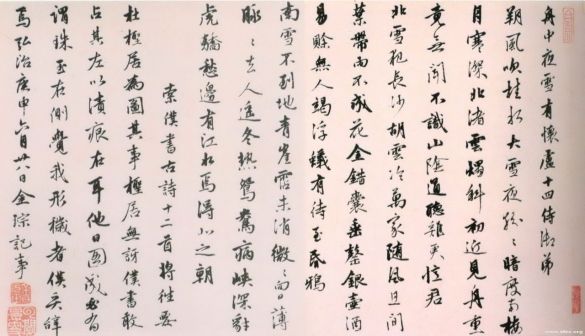 舟中夜雪有懷盧十四侍御弟
朔風吹桂水大雪夜紛〻暗度南樓
月寒深北渚雲燭斜初近見舟重
竟無聞不識山陰道聽雞更憶君
北雪犯長沙胡雲冷萬家隨風且間
葉帶雨不成花金錯囊垂罄銀壺酒
易賒無人竭浮蟻有待至昏鴉
南雪不到地青崖霑未消微〻向日薄
脉〻去人遙冬熱鴛鴦病峽深豺
虎驕愁邊有江水焉得北之朝
索僕書古詩十二首將往要
杜檉居為圖其事檉居無訝僕書敢
占其左以漬痕在耳他日圖成必有
謂珠玉在側覺我形穢者僕奚辭
焉弘治庚申六月廿八日金琮記事